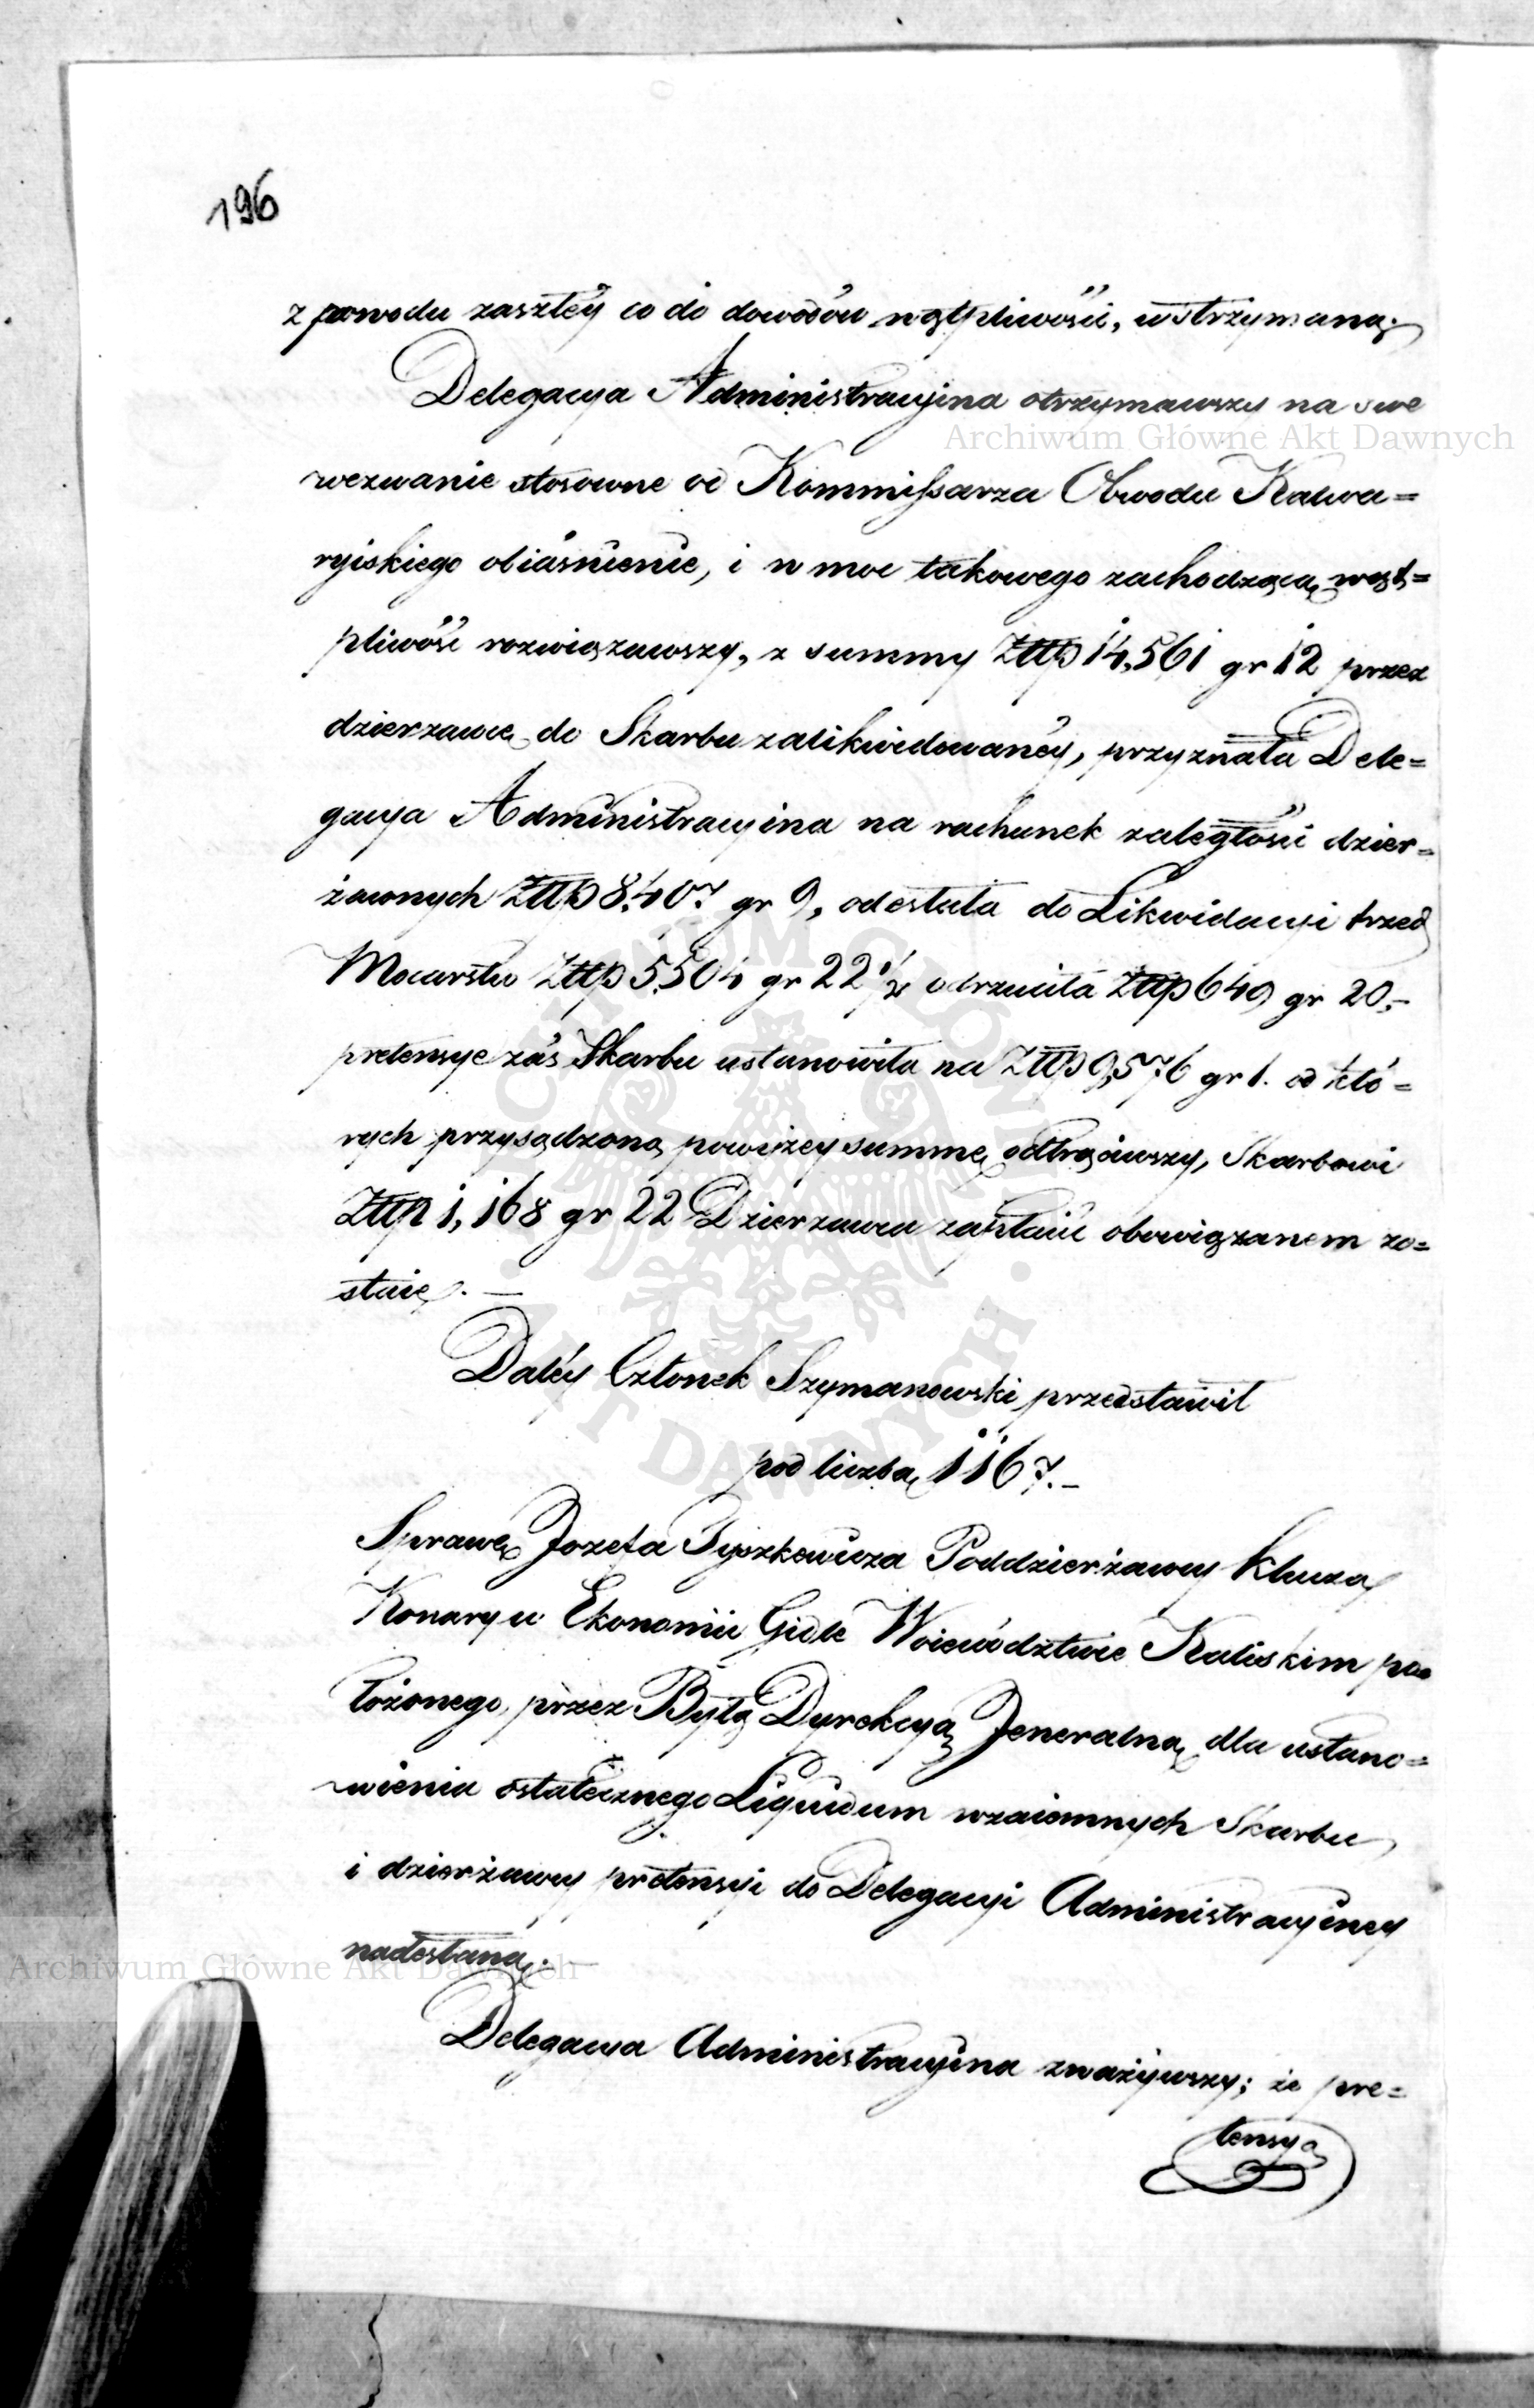 196
z powodu zaszłéy co do dowodów wątpliwości, wstrzymaną.
Delegacya Administracyjna otrzymawszy na swe
wezwanie stosowne od Kommissarza Obwodu Kalwa=
ryjskiego obiaśnienie, i w moc takowego zachodzącą wąt=
pliwość rozwiązawszy, z summy Złłp 14,561 gr 12 przez
dzierzawcę do Skarbu zalikwidowanéy, przyznała Dele=
gacya Administracyjna na rachunek zaległości dzier=
żawnych Złłp 8,407 gr 9, odesłała do Likwidacyi trzech
Mocarstw Złłp 5,504 gr 22 1/2 odrzuciła Złłp 649 gr 20,-
pretensye zaś Skarbu ustanowiła na Złłp 9,576 gr 1. od któ=
rych przysądzoną powyżey summę odtrąciwszy, Skarbowi
Złłp 1,168 gr 22 Dzierzawca zapłacić obowiązanem zo=
staie. —
Daléy Członek Szymanowski przedstawił
pod liczbą 1167.-
Sprawę Jozefa Tyszkewicza Poddzierżawcy klucza
Konary w Ekonomii Gidle Woiewództwie Kaliskim po=
łożonego, przez Byłą Dyrekcyą Jeneralną dla ustano=
wienia ostatecznego Liquidum wzaiemnych Skarbu
i dzierżawcy pretensyi do Delegacyi Administracyjney
nadesłaną. —
Delegacya Administracyjna zważywszy; że pre=
tensya
Archiwum Główne Akt Dawnych
ARCHIWUM GŁÓWNE · AKT DAWNYCH ·
Archiwum Główne Akt Dawnych